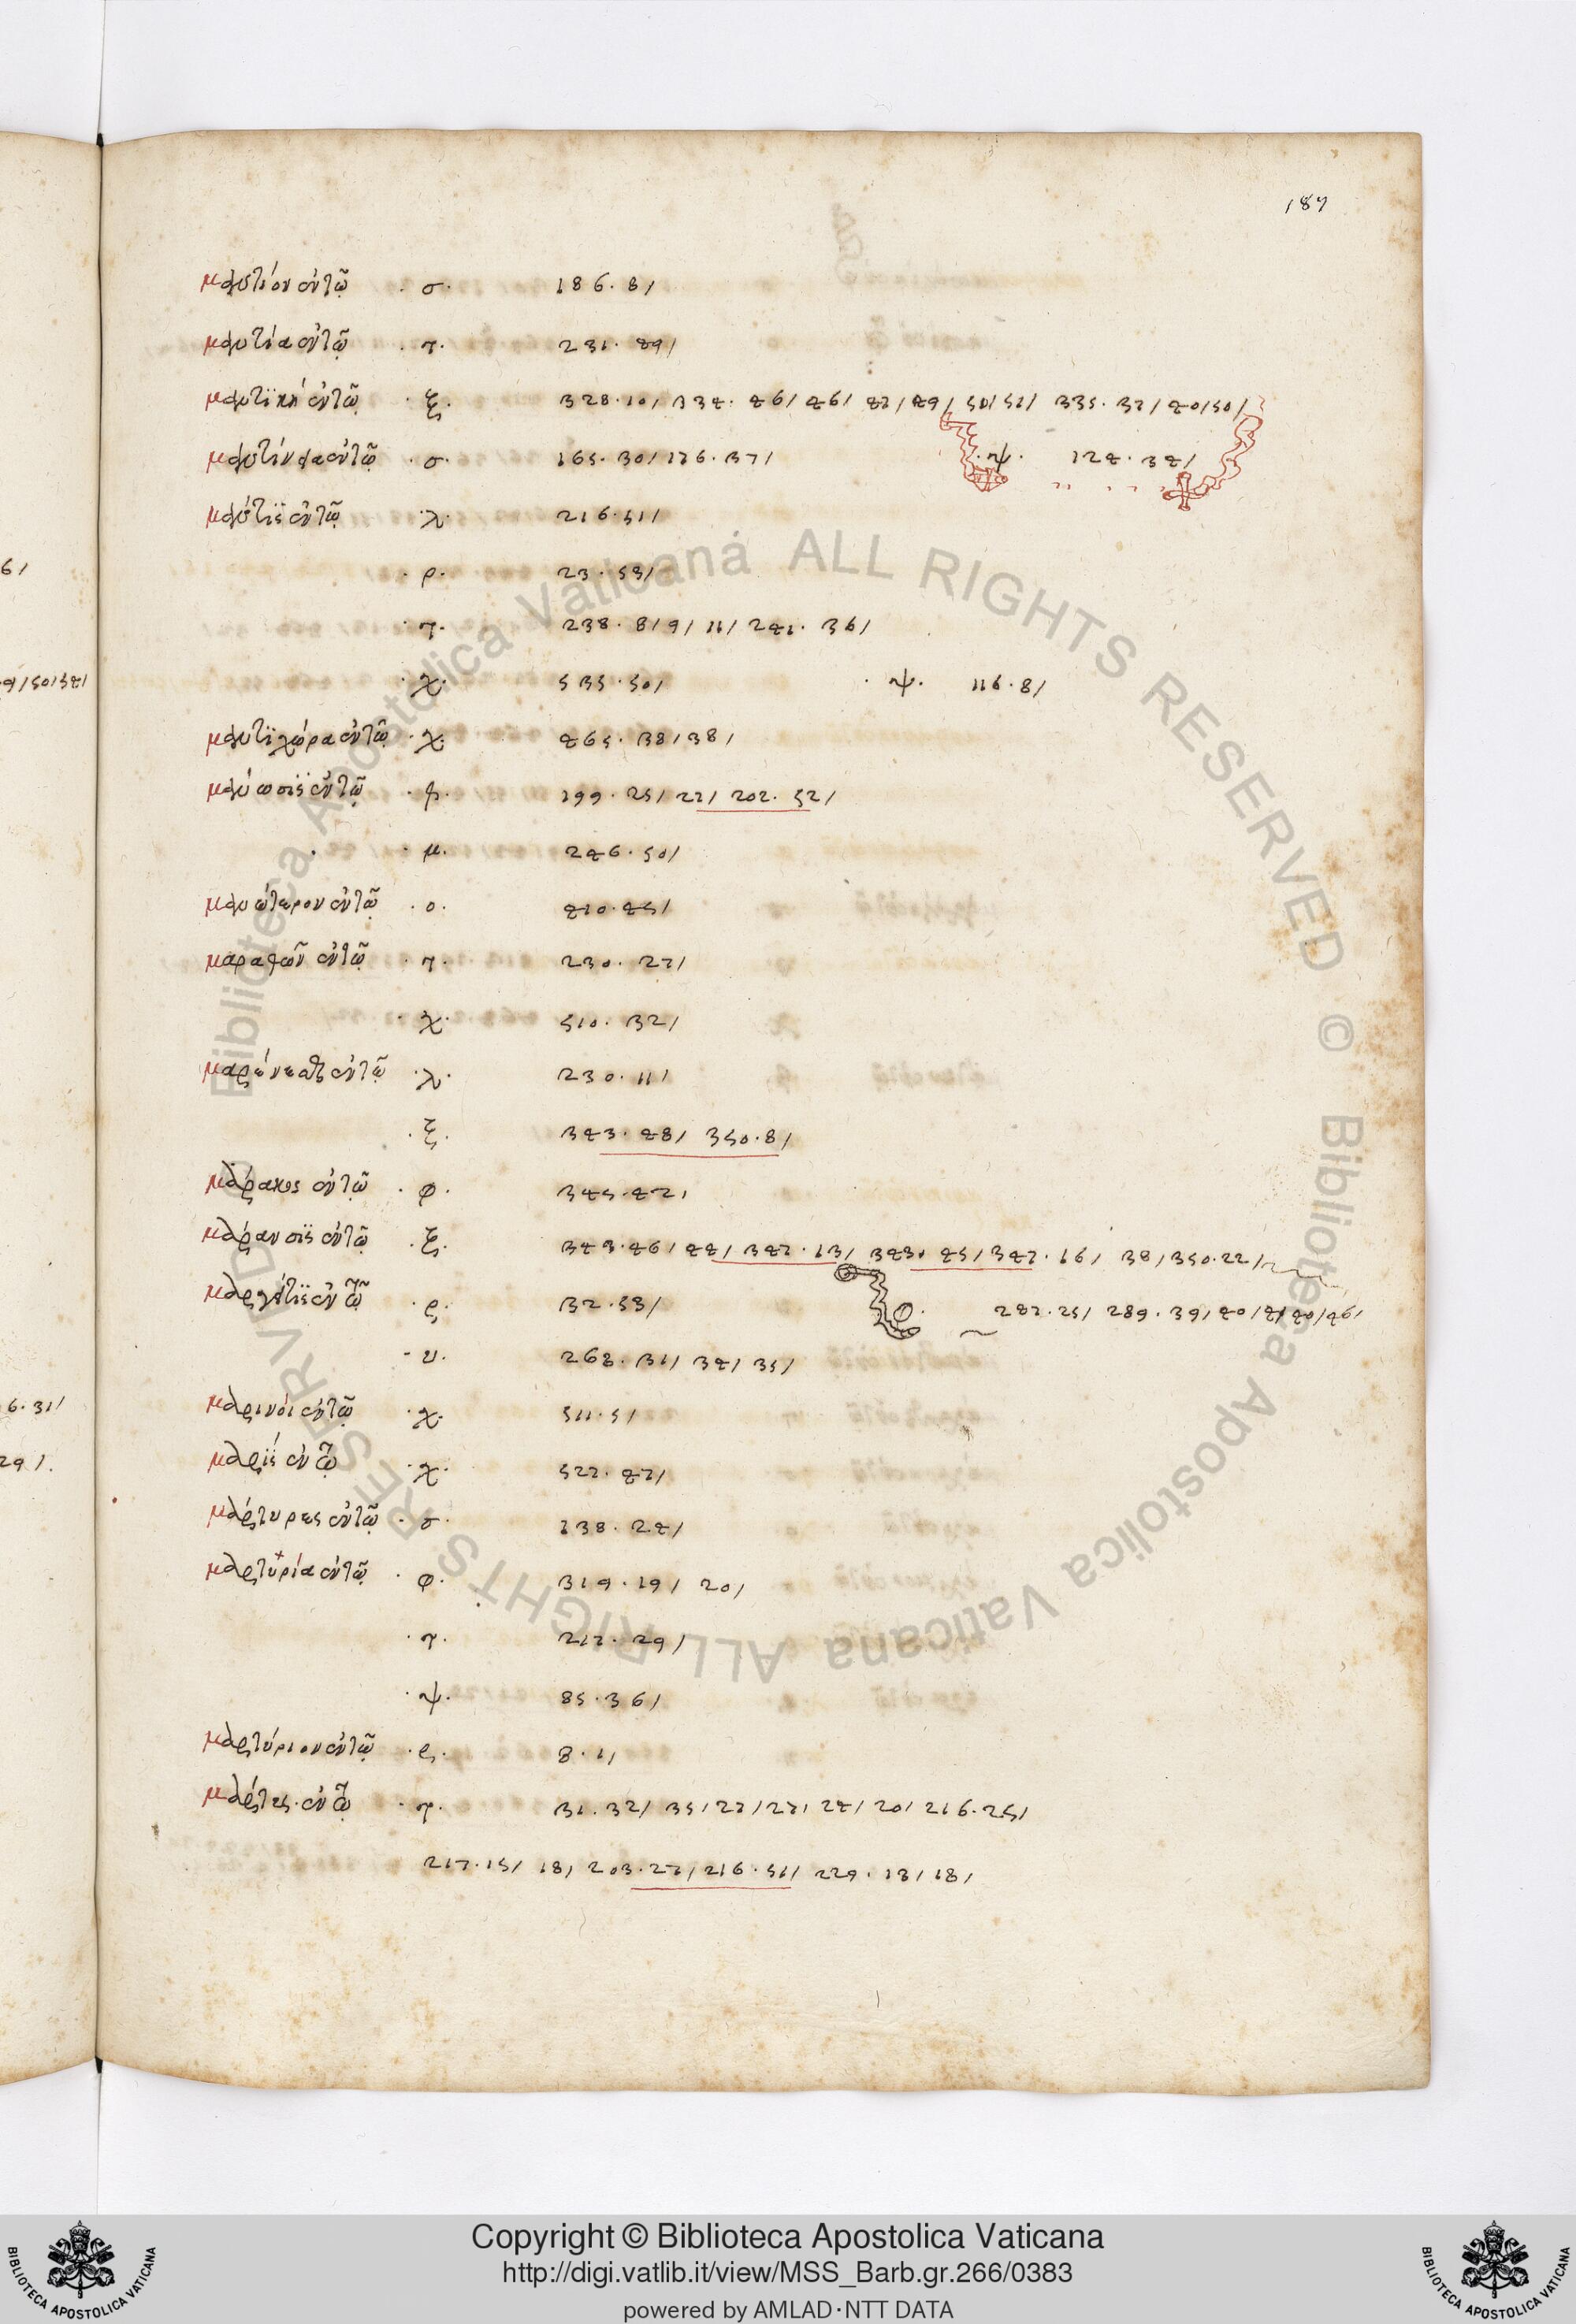 187
μαντεῖον ἐν τῷ · σ · 186 · 8/
μαντεία ἐν τῷ · τ · 231 · 49/
μαντικὴ ἐν τῷ · ξ · 328 · 10/ 334 · 46/ 46/ 47/ 49/ 50/ 51/ 335 · 37/ 40/ 50/
ἐν τῷ · σ · 165 · 30/ 176 · 37/ · ψ · 124 · 34/
μάντις ἐν τῷ · λ · 216 · 51/
· ρ · 23 · 53/
· τ · 238 · 8/ 9/ 11/ 241 · 36/
· χ · 535 · 50/ · ψ · 116 · 8/
μαντιχώρα ἐν τῷ · χ · 465 · 38/ 38/
μάνωσις ἐν τῷ · φ · 199 · 25/ 27/ 202 · 52/
· μ · 246 · 50/
μανώτερον ἐν τῷ · ο · 410 · 45/
μαραθὼν ἐν τῷ · τ · 230 · 27/
· χ · 510 · 32/
ἐν τῷ · λ · 230 · 11/
· ξ · 343 · 48/ 350 · 8/
ἐν τῷ · φ · 345 · 42/
μάρανσις ἐν τῷ · ξ · 343 · 46/ 44/ 347 · 13/ 343 · 45/ 347 · 16/ 38/ 350 · 22/
ἐν τῷ · ρ · 32 · 53/ φ · 287 · 25/ 289 · 39/ 40/ 41/ 40/ 46/
· υ · 268 · 31/ 34/ 35/
μαρινοὶ ἐν τῷ · χ · 511 · 5/
μαρὶς ἐν τῷ · χ · 527 · 47/
μάρτυρες ἐν τῷ · σ · 138 · 24/
μαρτυρία ἐν τῷ · φ · 319 · 19/ 20/
· τ · 217 · 29/
· ψ · 85 · 36/
μαρτύριον ἐν τῷ · ρ · 8 · 1/
ἐν τῷ · τ · 31 · 32/ 35/ 27/ 27/ 24/ 20/ 216 · 25/
217 · 15/ 18/ 203 · 27/ 216 · 51/ 229 · 13/ 18/
6/
9/ 50/ 34/
6 · 31/
29/.
Biblioteca Apostolica Vaticana ALL RIGHTS RESERVED © Biblioteca Apostolica Vaticana ALL RIGHTS RESERVED
Copyright © Biblioteca Apostolica Vaticana
http://digi.vatlib.it/view/MSS_Barb.gr.266/0383
powered by AMLAD·NTT DATA
BIBLIOTECA APOSTOLICA VATICANA
BIBLIOTECA APOSTOLICA VATICANA